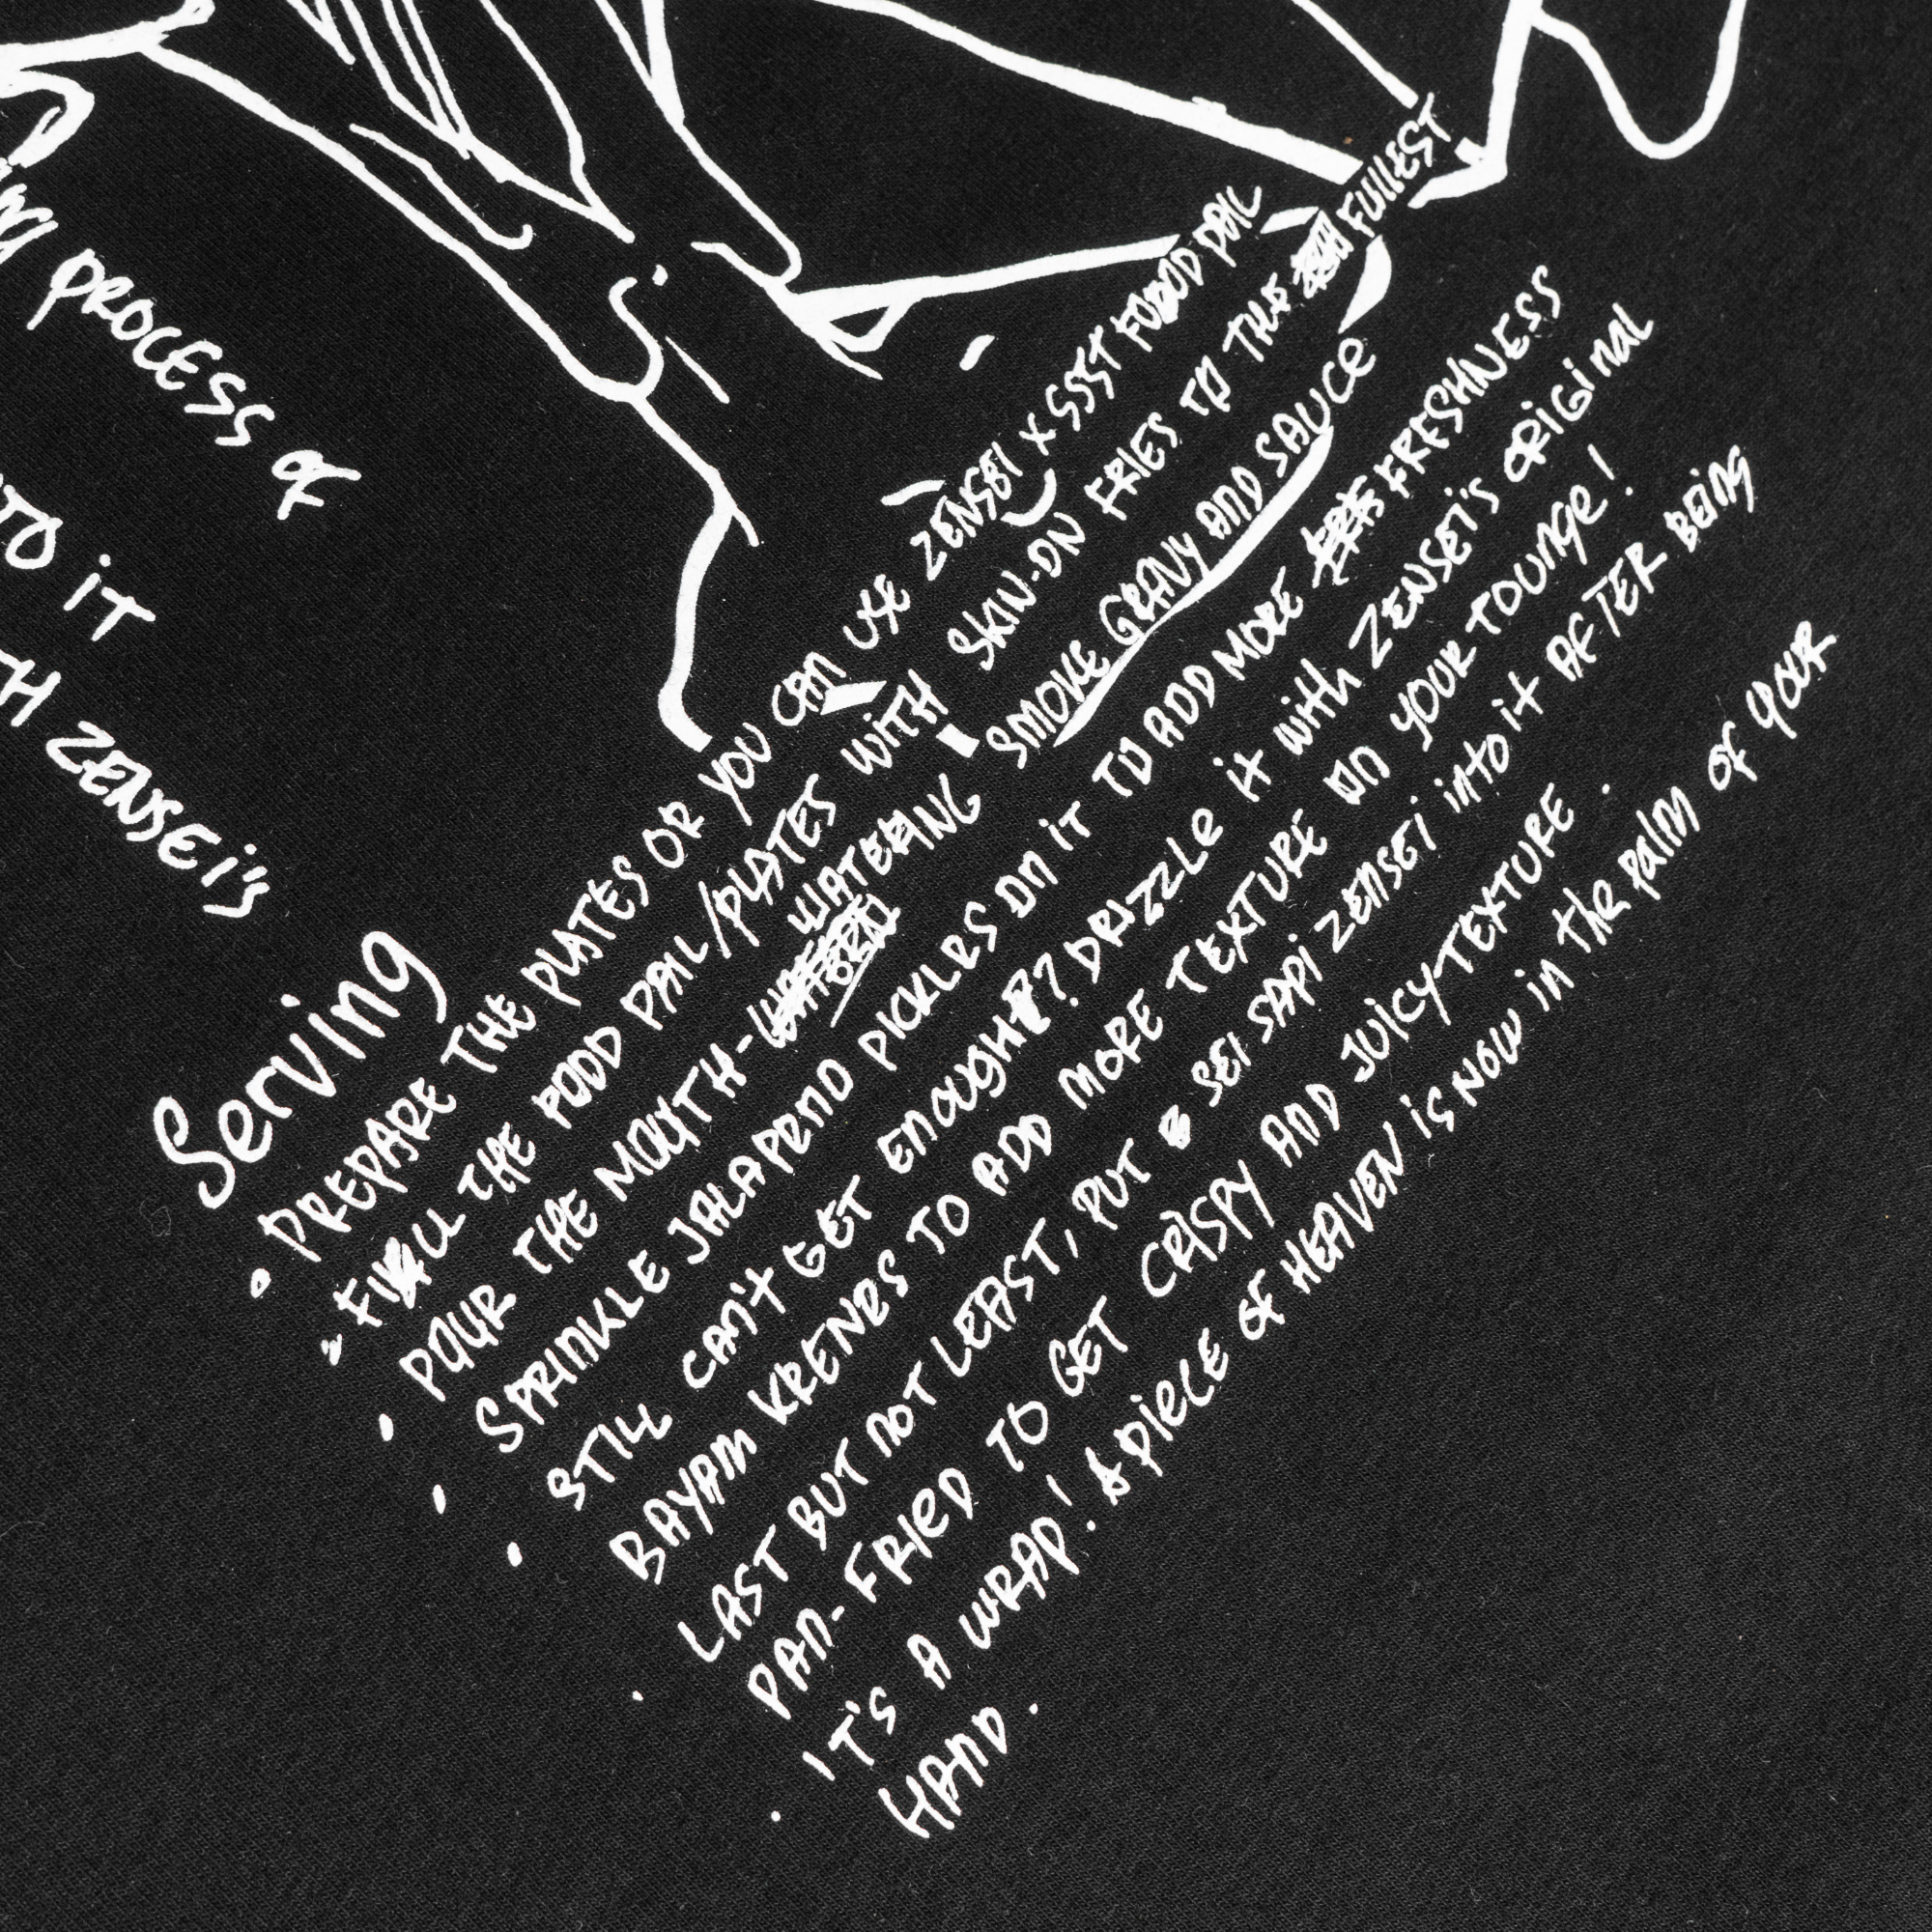 PROCESS OF
TO IT
TH ZENSEI'S
Serving
• PREPARE THE PLATES OR YOU CAN USE ZENSEI X SSST FOOD PAIL
• FILL THE FOOD PAIL/PLATES WITH SKIN-ON FRIES TO THE FULLEST
• POUR THE MOUTH-WATERING SMOKE GRAVY AND SAUCE
• SPRINKLE JALAPENO PICKLES ON IT TO ADD MORE FRESHNESS
• STILL CAN'T GET ENOUGH? DRIZZLE IT WITH ZENSEI'S ORIGINAL
BAYAM KRENES TO ADD MORE TEXTURE ON YOUR TOUNGE!
• LAST BUT NOT LEAST, PUT SEI SAPI ZENSEI INTO IT AFTER BEING
PAN-FRIED TO GET CRISPY AND JUICY TEXTURE.
• IT'S A WRAP! A PIECE OF HEAVEN IS NOW IN THE PALM OF YOUR
HAND.